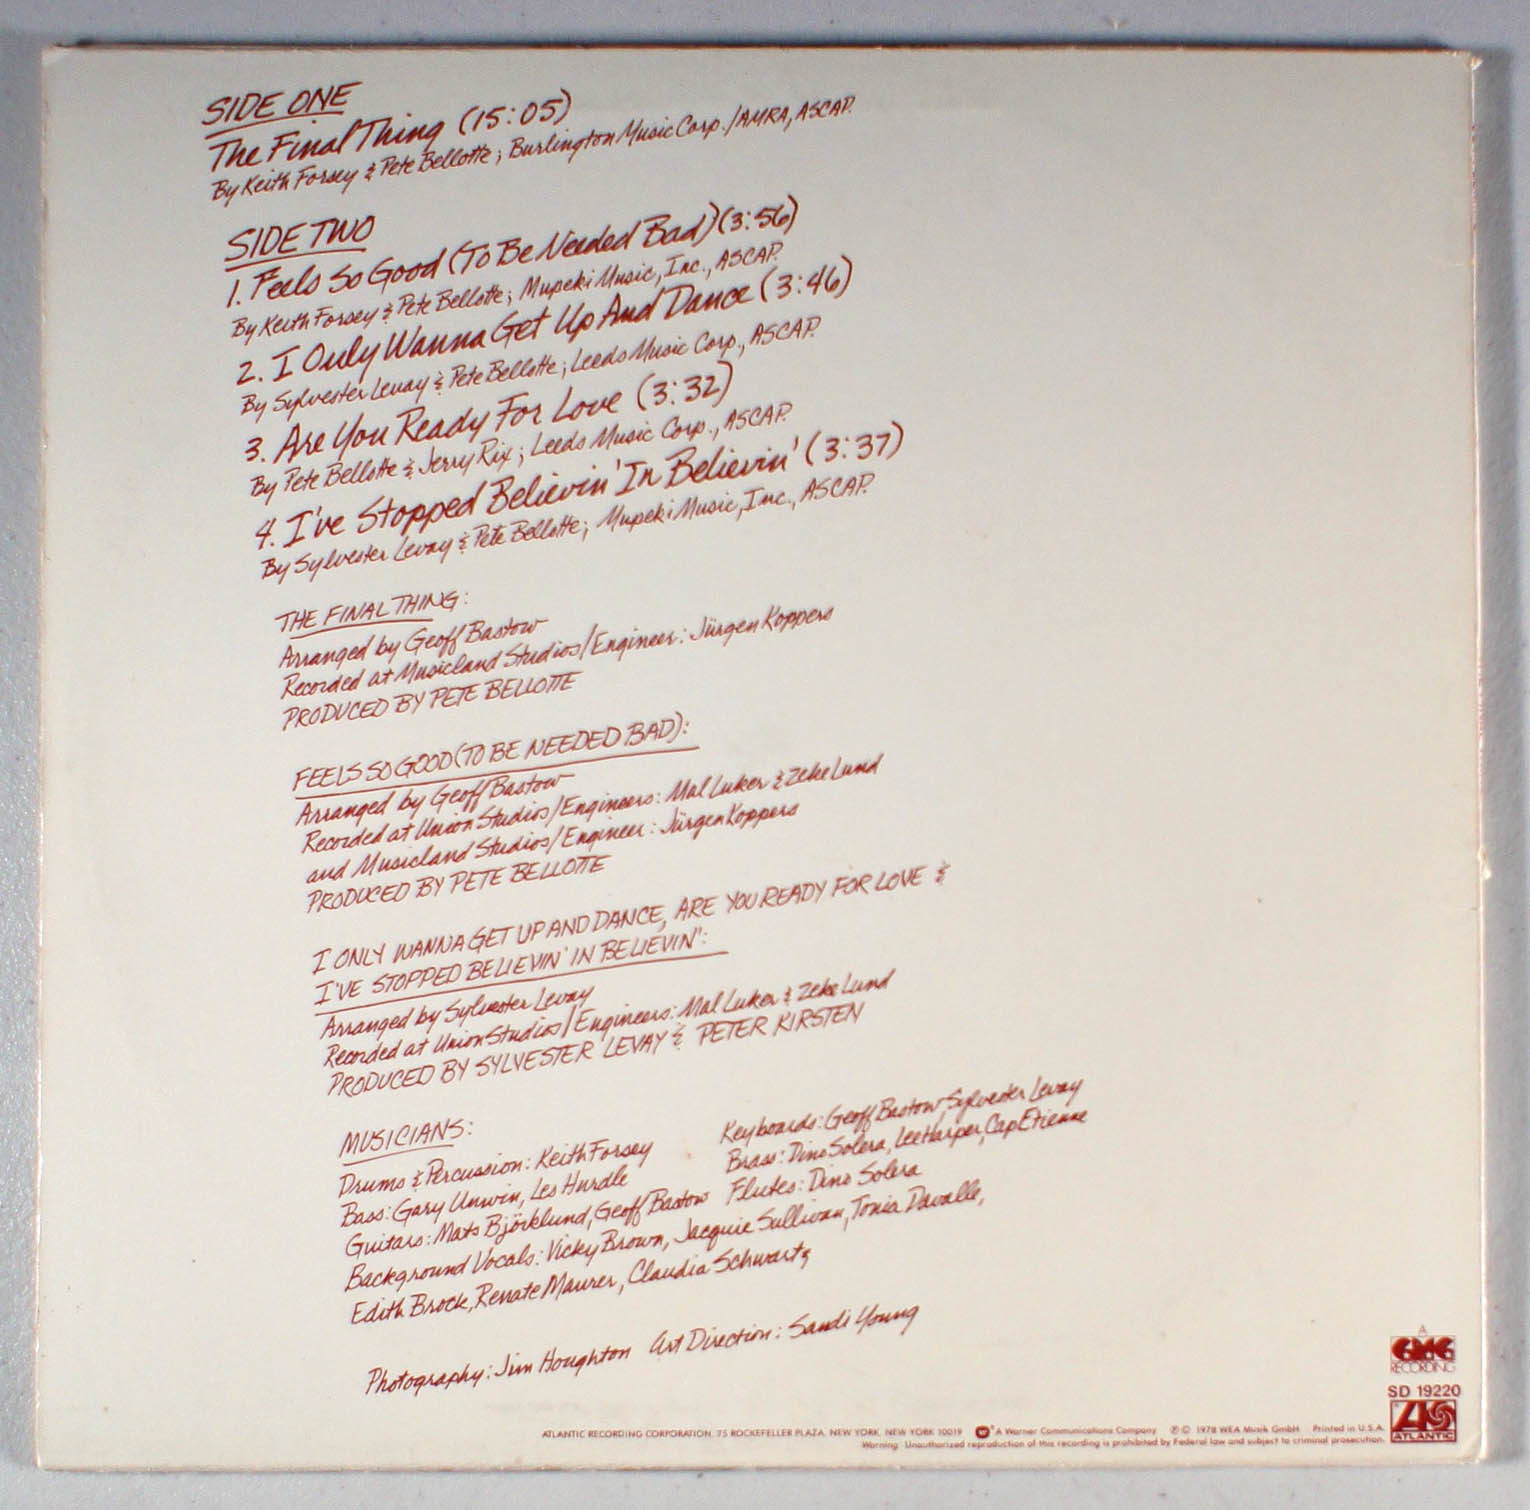 SIDE ONE
The Final Thing (15:05)
By Keith Forsey & Pete Bellotte; Burlington Music Corp./AMRA, ASCAP.
SIDE TWO
1. Feels So Good (To Be Needed Bad) (3:56)
By Keith Forsey & Pete Bellotte; Mupeki Music, Inc., ASCAP.
2. I Only Wanna Get Up And Dance (3:46)
By Sylvester Levay & Pete Bellotte; Leeds Music Corp., ASCAP.
3. Are You Ready For Love (3:32)
By Pete Bellotte & Jerry Rix; Leeds Music Corp., ASCAP.
4. I've Stopped Believin' In Believin' (3:37)
By Sylvester Levay & Pete Bellotte; Mupeki Music, Inc., ASCAP.
THE FINAL THING:
Arranged by Geoff Bastow
Recorded at Musicland Studios/Engineer: Jürgen Koppers
PRODUCED BY PETE BELLOTTE
FEELS SO GOOD (TO BE NEEDED BAD):
Arranged by Geoff Bastow
Recorded at Union Studios/Engineers: Mal Luker & Zeke Lund
and Musicland Studios/Engineer: Jürgen Koppers
PRODUCED BY PETE BELLOTTE
I ONLY WANNA GET UP AND DANCE, ARE YOU READY FOR LOVE &
I'VE STOPPED BELIEVIN' IN BELIEVIN':
Arranged by Sylvester Levay
Recorded at Union Studios/Engineers: Mal Luker & Zeke Lund
PRODUCED BY SYLVESTER LEVAY & PETER KIRSTEN
MUSICIANS:
Drums & Percussion: Keith Forsey
Bass: Gary Unwin, Les Hurdle
Guitars: Mats Björklund, Geoff Bastow
Keyboards: Geoff Bastow, Sylvester Levay
Brass: Dino Solera, Lee Harper, Cap Etienne
Flutes: Dino Solera
Background Vocals: Vicky Brown, Jacquie Sullivan, Tonia Davalle,
Edith Brock, Renate Maurer, Claudia Schwartz
Photography: Jim Houghton Art Direction: Sandi Young
A
GMG
RECORDING
SD 19220
ATLANTIC
ATLANTIC RECORDING CORPORATION, 75 ROCKEFELLER PLAZA, NEW YORK, NEW YORK 10019 ® A Warner Communications Company ℗ © 1978 WEA Musik GmbH Printed in U.S.A.
Warning: Unauthorized reproduction of this recording is prohibited by Federal law and subject to criminal prosecution.